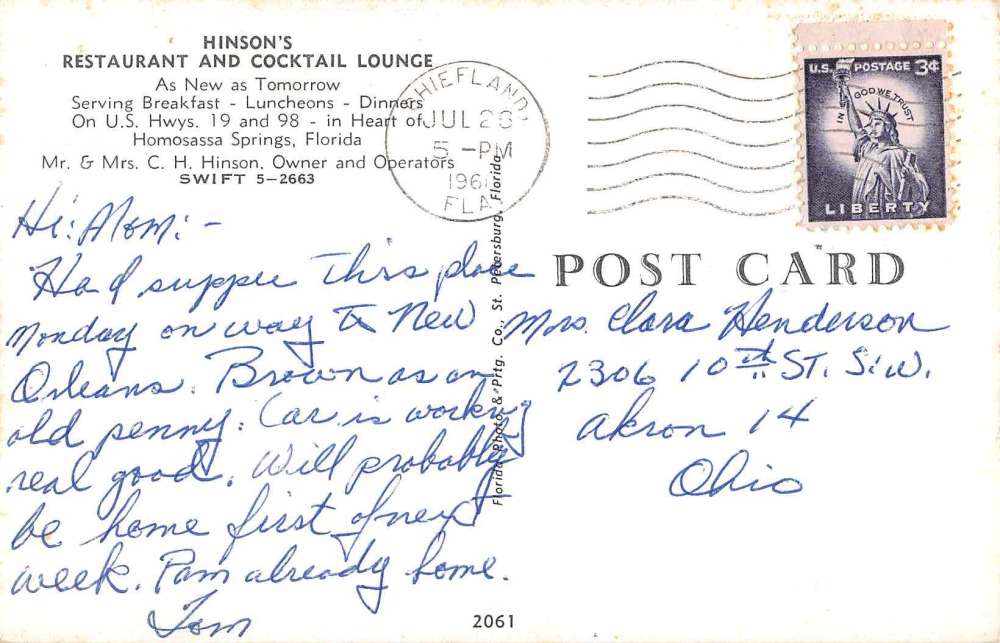 HINSON'S
RESTAURANT AND COCKTAIL LOUNGE
As New as Tomorrow
Serving Breakfast - Luncheons - Dinners
On U.S. Hwys. 19 and 98 - in Heart of
Homosassa Springs, Florida
Mr. & Mrs. C. H. Hinson, Owner and Operators
SWIFT 5-2663
CHIEFLAND
JUL 26
5 - PM
FLA.
U.S. POSTAGE 3¢
IN GOD WE TRUST
LIBERTY
Hi: Mom: -
Had supper this place
Monday on way to New
Orleans. Brown as an
old penny. Car is working
real good. Will probably
be home first of next
week. Pam already home.
Tom
Florida Photo & Prtg. Co., St. Petersburg, Florida
POST CARD
Mrs. Clara Henderson
2306 10th St. S.W.
Akron 14
Ohio
2061